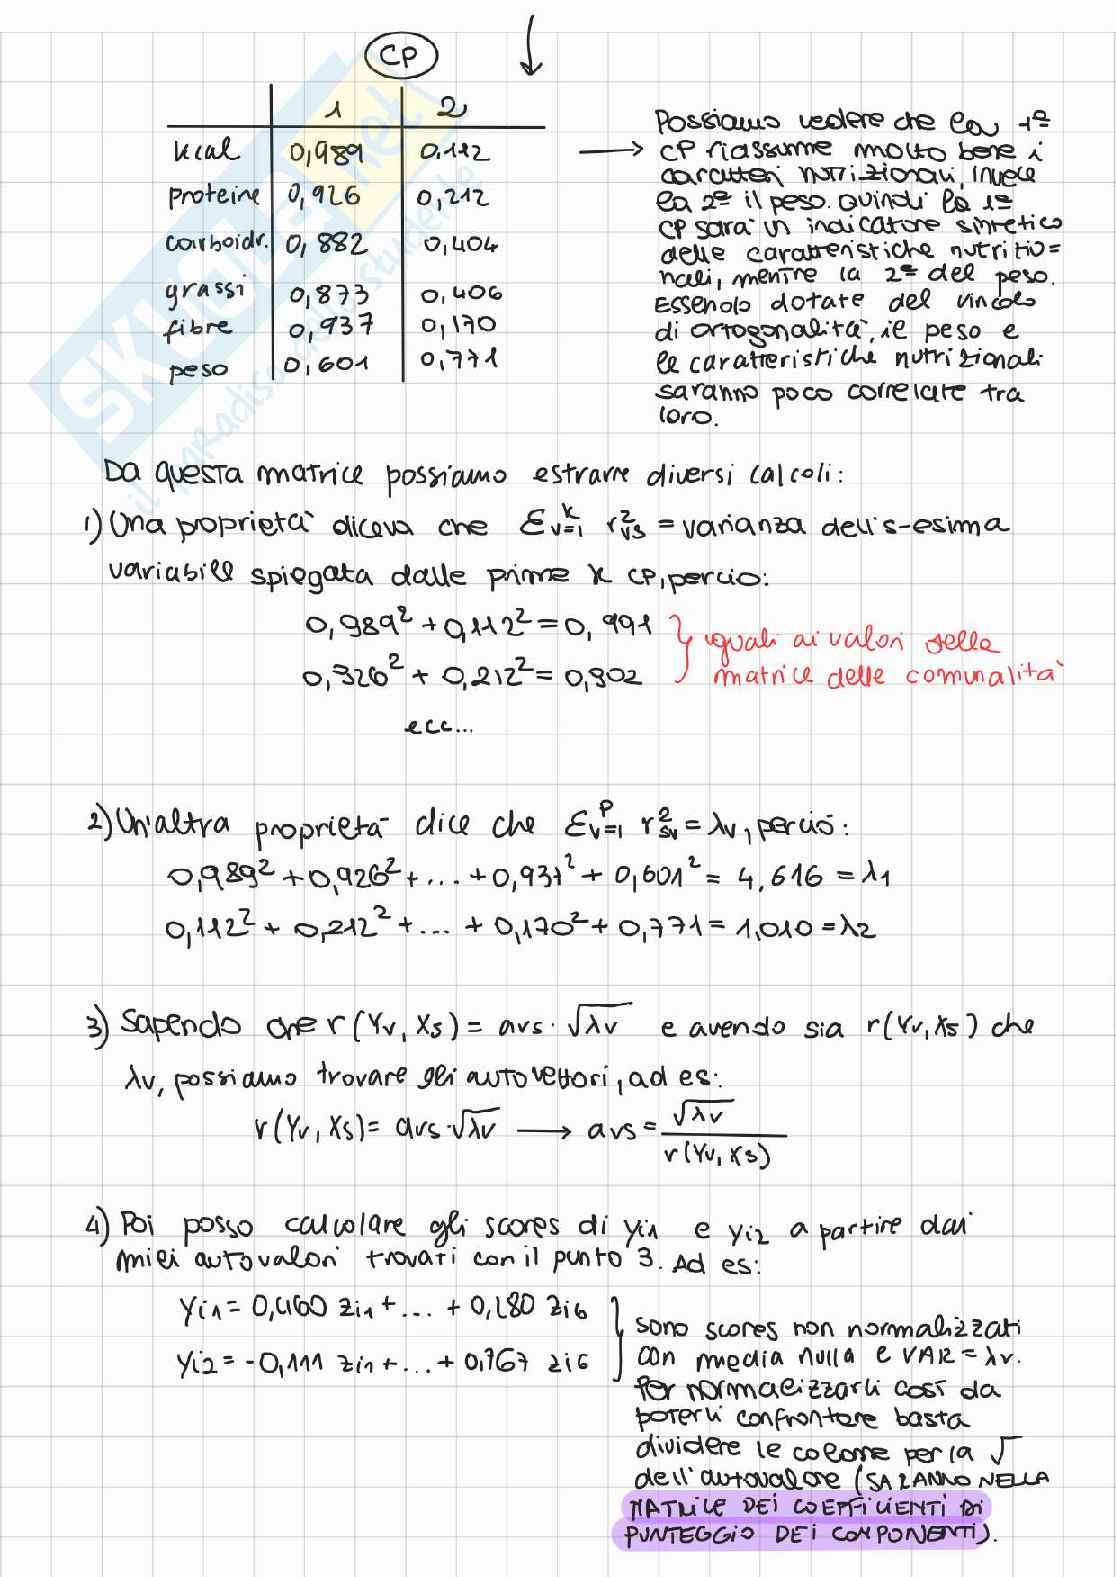 CP
1 2
kcal 0,989 0,112
proteine 0,926 0,212
carboidr. 0,882 0,404
grassi 0,873 0,406
fibre 0,937 0,170
peso 0,601 0,771
Possiamo vedere che la 1ª
CP riassume molto bene i
caratteri nutrizionali, invece
la 2ª il peso. Quindi la 1ª
CP sarà un indicatore sintetico
delle caratteristiche nutritio=
nali, mentre la 2ª del peso.
Essendo dotate del vincolo
di ortogonalità, il peso e
le caratteristiche nutrizionali
saranno poco correlate tra
loro.
Da questa matrice possiamo estrarre diversi calcoli:
1) Una proprietà diceva che Σ_{v=1}^{k} r²_{vs} = varianza dell's-esima
variabile spiegata dalle prime k CP, perciò:
0,989² + 0,112² = 0,991
0,926² + 0,212² = 0,902
uguali ai valori della
matrice delle comunalità
ecc...
2) Un'altra proprietà dice che Σ_{v=1}^{p} r²_{sv} = λv, perciò:
0,989² + 0,926² + ... + 0,937² + 0,601² = 4,616 = λ1
0,112² + 0,212² + ... + 0,170² + 0,771 = 1,010 = λ2
3) Sapendo che r(Yv, Xs) = avs · √λv e avendo sia r(Yv, Xs) che
λv, possiamo trovare gli autovettori, ad es:
r(Yv, Xs) = avs · √λv → avs = √λv / r(Yv, Xs)
4) Poi posso calcolare gli scores di yi1 e yi2 a partire dai
miei autovalori trovati con il punto 3. Ad es:
yi1 = 0,460 zi1 + ... + 0,280 zi6
yi2 = -0,111 zi1 + ... + 0,767 zi6
sono scores non normalizzati
con media nulla e VAR = λv.
Per normalizzarli così da
poterli confrontare basta
dividere le colonne per la √
dell'autovalore (SARANNO NELLA
MATRICE DEI COEFFICIENTI DI
PUNTEGGIO DEI COMPONENTI).
SKUOLA.net
il paradiso dello studente